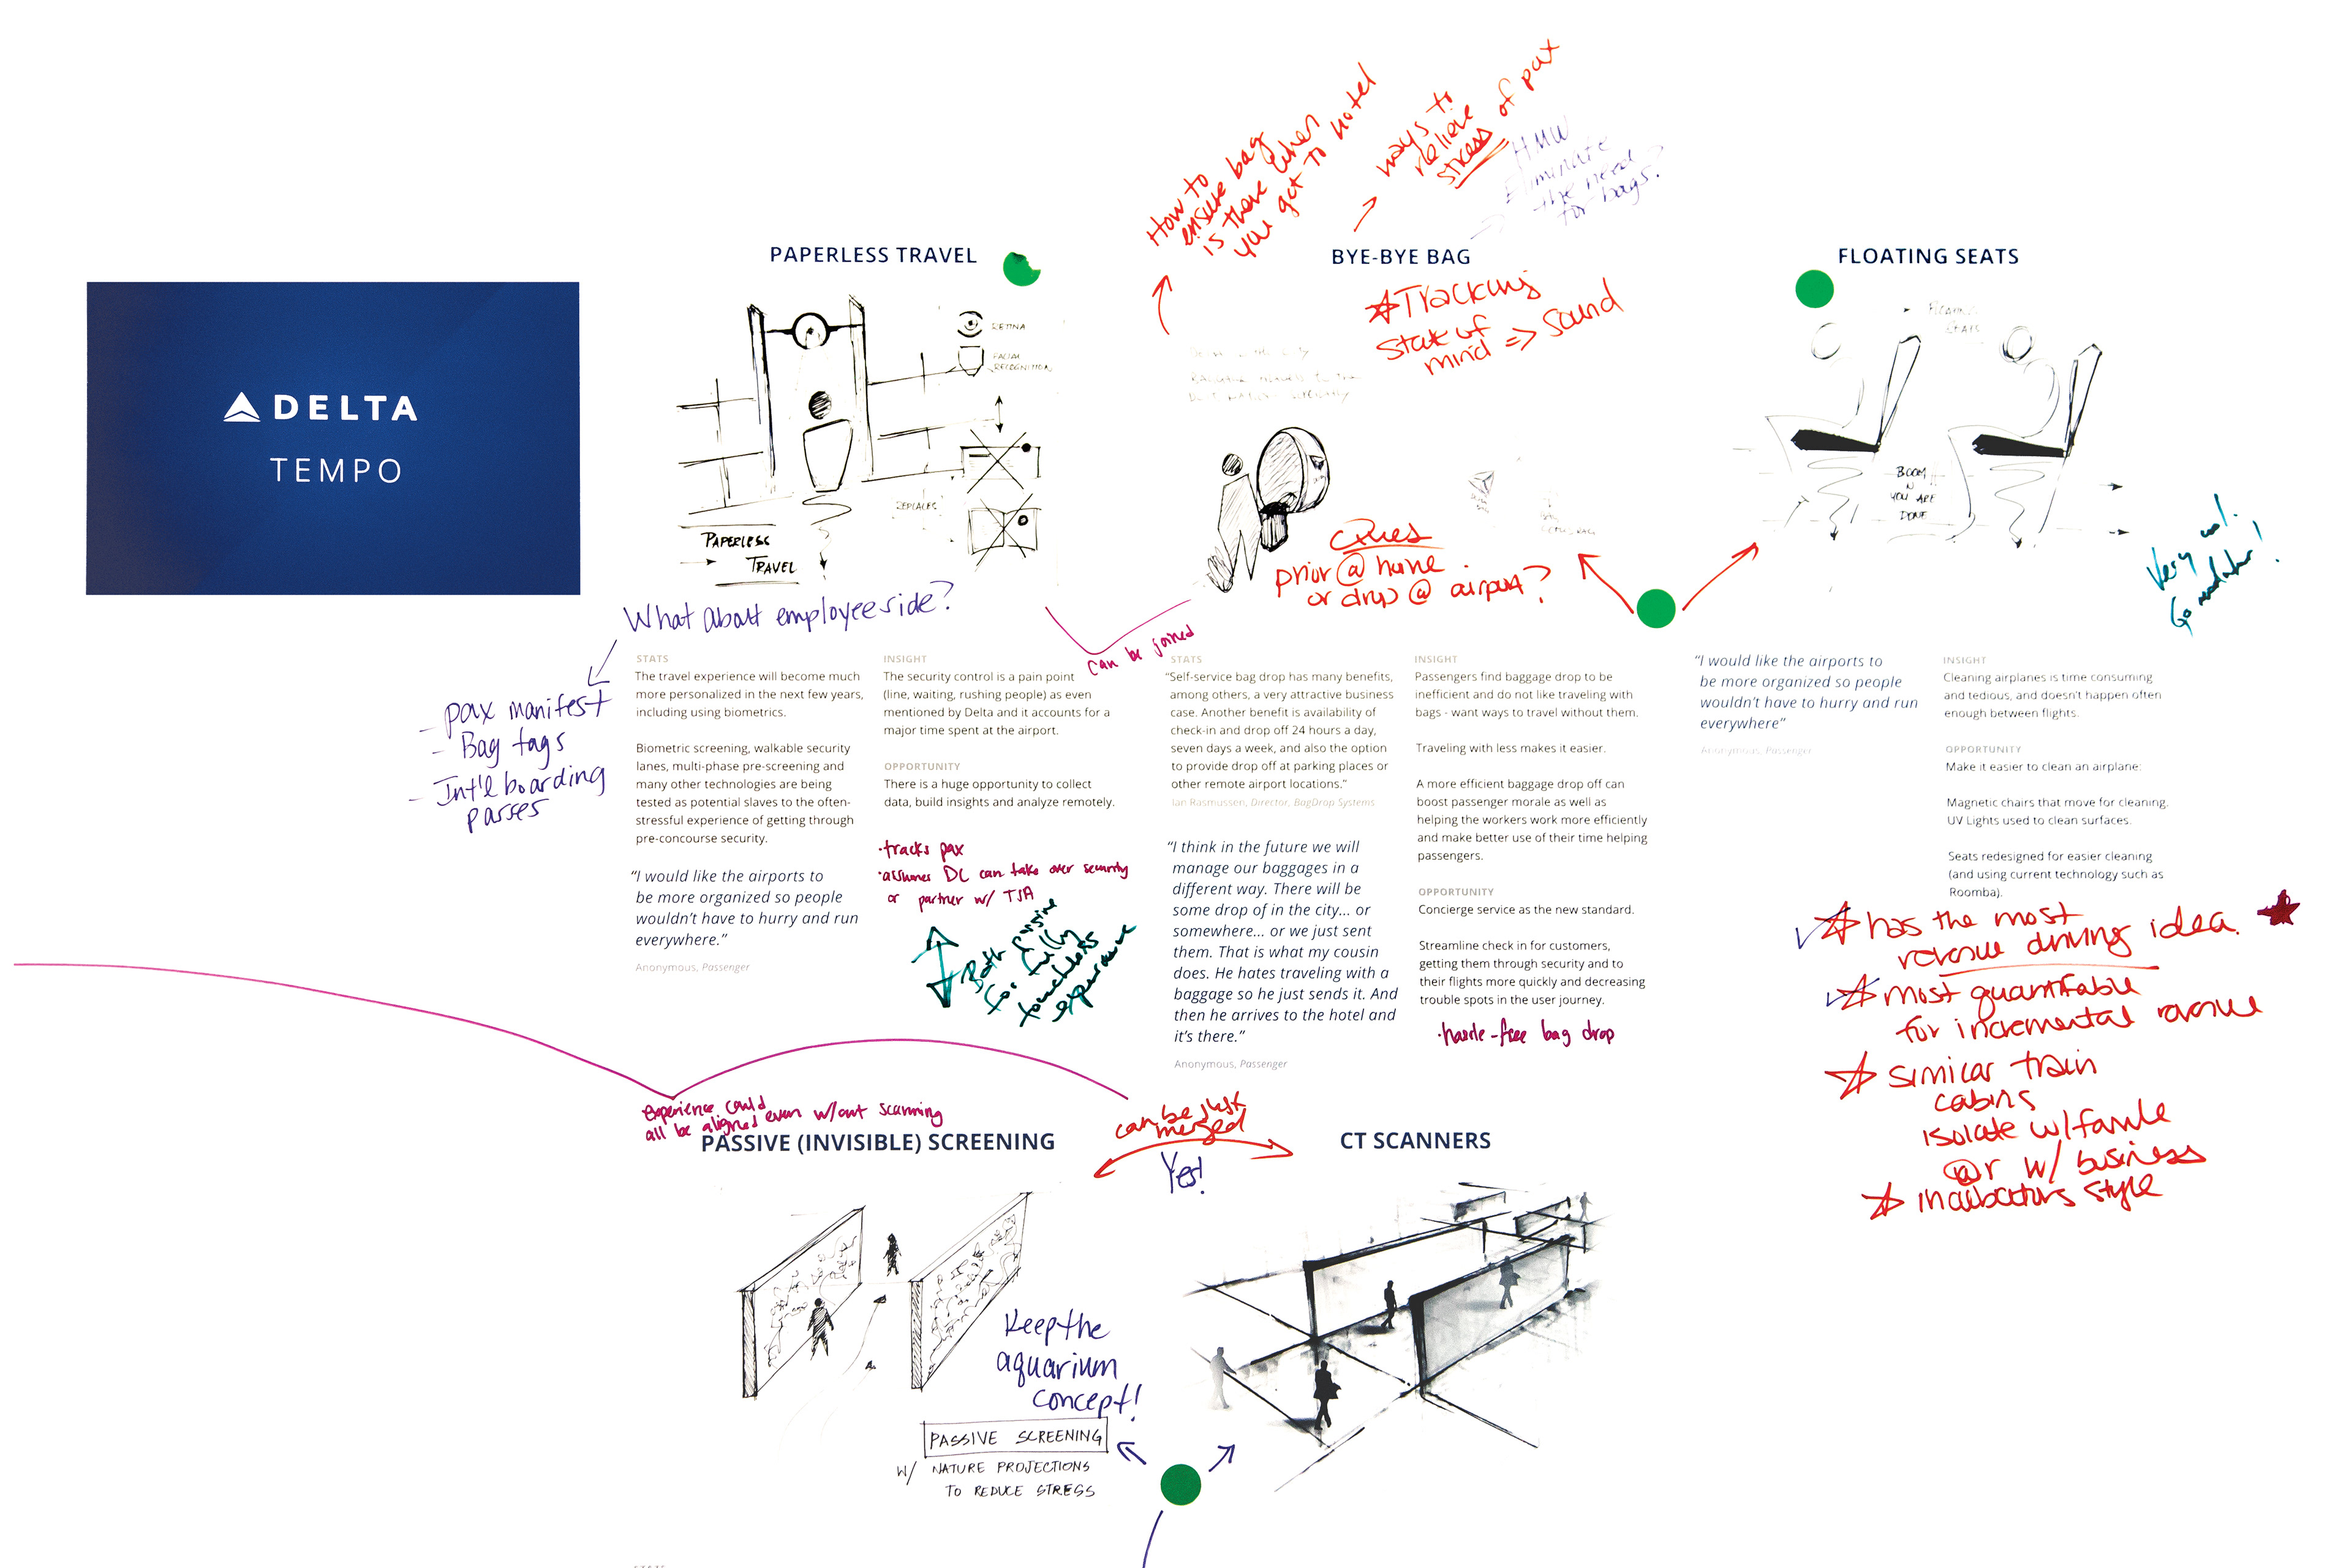 How to
ensure bag
is there when
you get to hotel
ways to
relieve
stress of pax
HMW
Eliminate
the need
for bags?
DELTA
TEMPO
PAPERLESS TRAVEL
RETINA
FACIAL
RECOGNITION
REPLACES
PAPERLESS
TRAVEL
What about employee side?
- pax manifest
- Bag tags
- Int'l boarding
passes
STATS
The travel experience will become much
more personalized in the next few years,
including using biometrics.
Biometric screening, walkable security
lanes, multi-phase pre-screening and
many other technologies are being
tested as potential slaves to the often-
stressful experience of getting through
pre-concourse security.
“I would like the airports to
be more organized so people
wouldn’t have to hurry and run
everywhere.”
Anonymous, Passenger
INSIGHT
The security control is a pain point
(line, waiting, rushing people) as even
mentioned by Delta and it accounts for a
major time spent at the airport.
OPPORTUNITY
There is a huge opportunity to collect
data, build insights and analyze remotely.
·tracks pax
·assumes DL can take over security
or partner w/ TSA
touchless
experience
can be joined
BYE-BYE BAG
Tracking
State of
mind => Sound
prior @ home
or drop @ airport?
STATS
“Self-service bag drop has many benefits,
among others, a very attractive business
case. Another benefit is availability of
check-in and drop off 24 hours a day,
seven days a week, and also the option
to provide drop off at parking places or
other remote airport locations.”
Ian Rasmussen, Director, BagDrop Systems
“I think in the future we will
manage our baggages in a
different way. There will be
some drop of in the city... or
somewhere... or we just sent
them. That is what my cousin
does. He hates traveling with a
baggage so he just sends it. And
then he arrives to the hotel and
it’s there.”
Anonymous, Passenger
INSIGHT
Passengers find baggage drop to be
inefficient and do not like traveling with
bags - want ways to travel without them.
Traveling with less makes it easier.
A more efficient baggage drop off can
boost passenger morale as well as
helping the workers work more efficiently
and make better use of their time helping
passengers.
OPPORTUNITY
Concierge service as the new standard.
Streamline check in for customers,
getting them through security and to
their flights more quickly and decreasing
trouble spots in the user journey.
·hassle-free bag drop
FLOATING SEATS
BOOM
N
YOU ARE
DONE
Very cool!
Go modular!
“I would like the airports to
be more organized so people
wouldn’t have to hurry and run
everywhere”
Anonymous, Passenger
INSIGHT
Cleaning airplanes is time consuming
and tedious, and doesn’t happen often
enough between flights.
OPPORTUNITY
Make it easier to clean an airplane:
Magnetic chairs that move for cleaning.
UV Lights used to clean surfaces.
Seats redesigned for easier cleaning
(and using current technology such as
Roomba).
has the most
revenue driving idea.
most quantifiable
for incremental revenue
similar train
cabins
isolate w/ famile
or w/ business
incubators style
experience could
all be aligned even w/out scanning
PASSIVE (INVISIBLE) SCREENING
can be just
merged
Yes!
CT SCANNERS
Keep the
aquarium
concept!
PASSIVE SCREENING
W/ NATURE PROJECTIONS
TO REDUCE STRESS